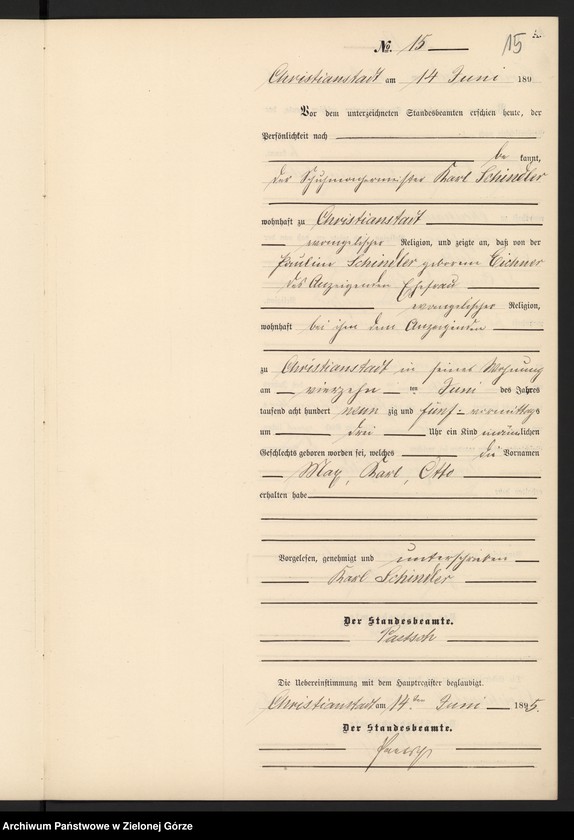 15
A.
No. 15
Christianstadt am 14 Juni 189
Vor dem unterzeichneten Standesbeamten erschien heute, der
Persönlichkeit nach
be kannt,
der Schuhmachermeister Karl Schindler
wohnhaft zu Christianstadt
evangelischer Religion, und zeigte an, daß von der
Pauline Schindler geborene Eichner
des Anzeigenden Ehefrau
evangelischer Religion,
wohnhaft bei ihm dem Anzeigenden
zu Christianstadt in seiner Wohnung
am vierzehn ten Juni des Jahres
tausend acht hundert neun zig und fünf vormittags
um drei Uhr ein Kind männlichen
Geschlechts geboren worden sei, welches die Vornamen
Max, Karl, Otto
erhalten habe
Vorgelesen, genehmigt und unterschrieben
Karl Schindler
Der Standesbeamte.
Paetsch
Die Uebereinstimmung mit dem Hauptregister beglaubigt.
Christianstadt am 14ten Juni 1895.
Der Standesbeamte.
Paetsch
Archiwum Państwowe w Zielonej Górze